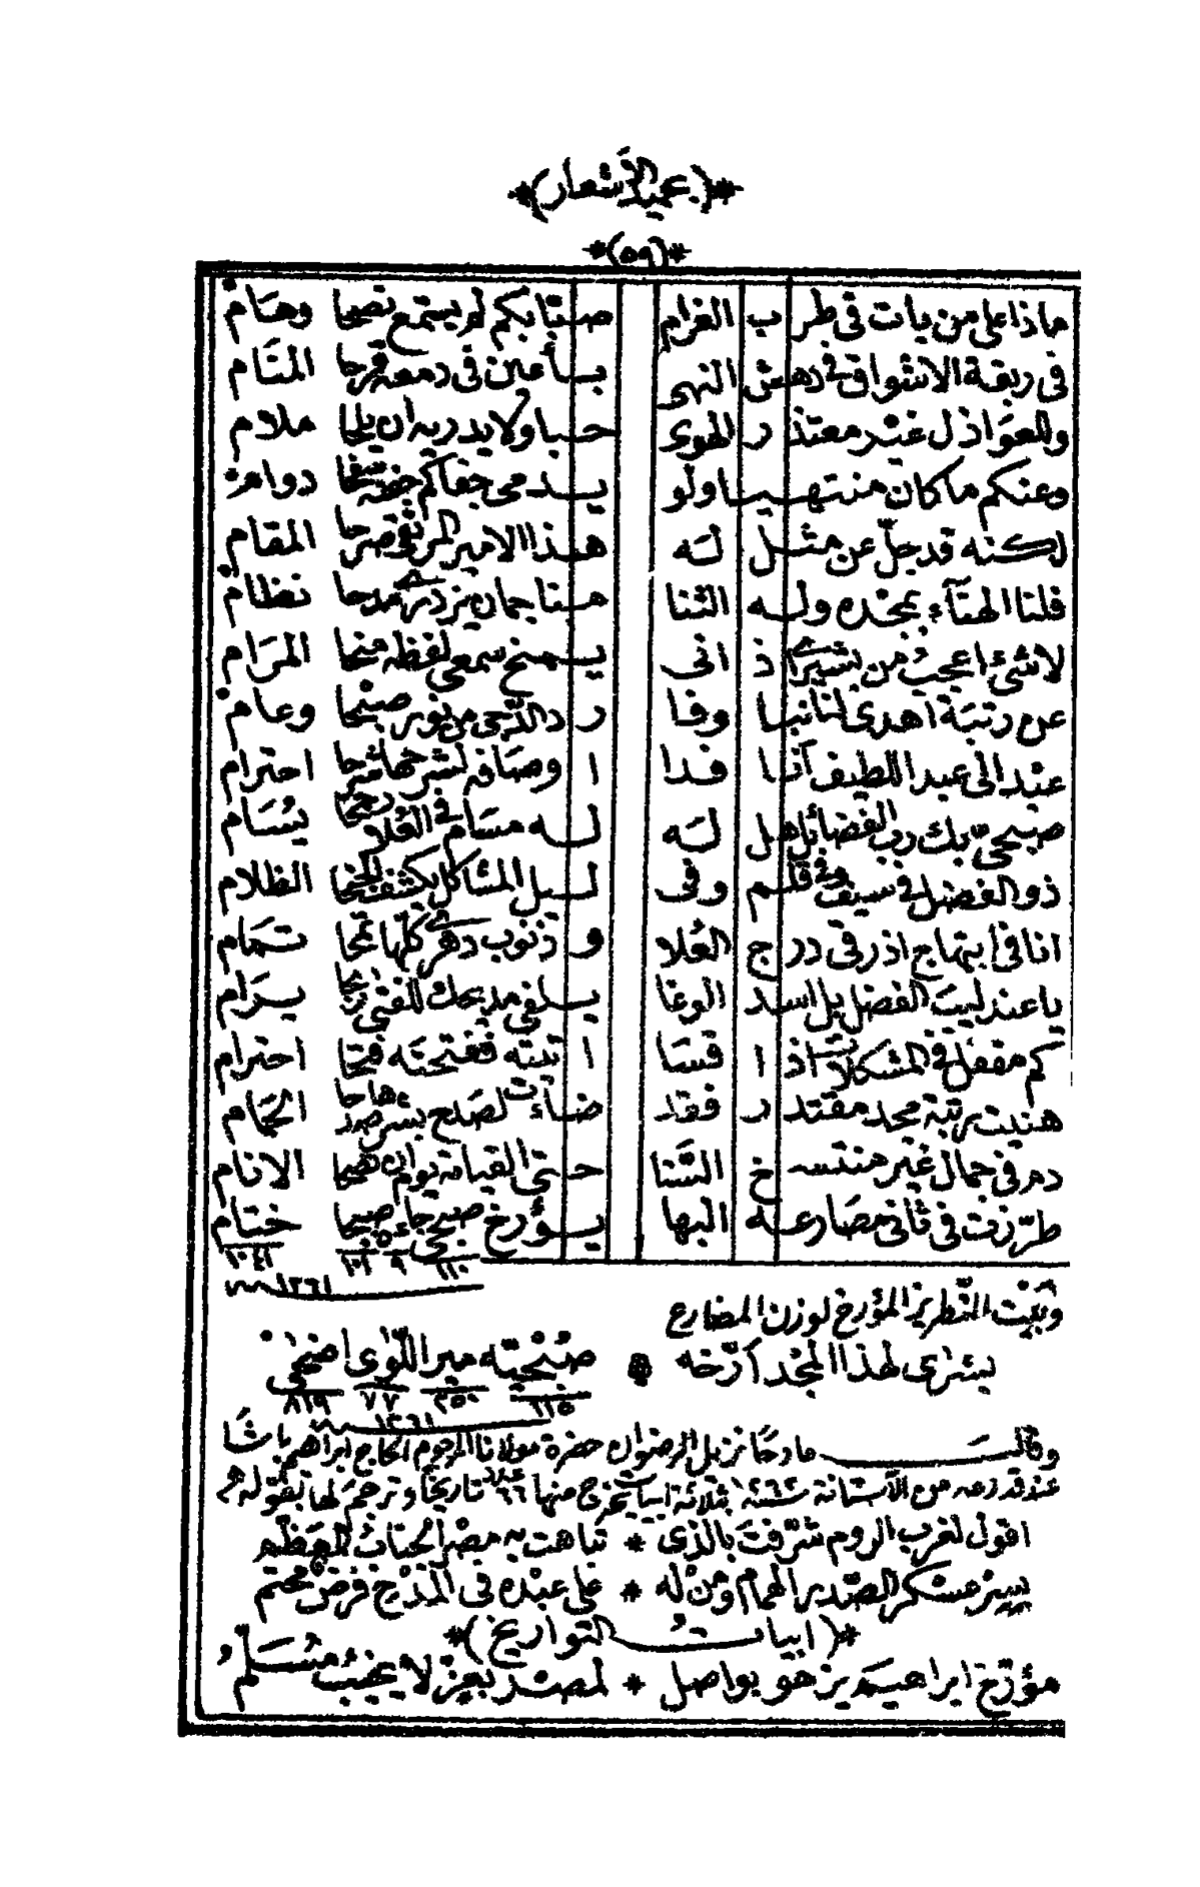 *(عميد الأشعار)*
*(٥٩)*
ماذا على من بات في طرب الغرام صبّا بكم لم يستمع نصحا وهام
في ربقة الاشواق في دهش النهى باعين في دمعه قرحا المنام
وللعواذل غير معتذر الهوى حبا ولا يدريه ان يلحا ملام
وعنكم ما كان منتهيا ولو يدمى جفاكم دوام
لكنه قد جلّ عن مثل له هذا الامير المرتقى صرحا المقام
فلنا الهناء بمجده وله الثنا هنا جمان يزدهى مدحا نظام
لاشئ اعجب من بشير اذ انى يمنح سمعى لفظه منحا المرام
عن رتبة اهدى لنا نبا وفا رد الدّجى من نور صبحا وعام
عبد الى عبد اللطيف اذا فدا ا وصافه احترام
صبحى بك رب الفضائل هل له له مسام في العلا يسام
ذو الفضل في سيف وفي قلم وفى ليل المشاكل الظلام
انا في ابتهاج اذ رقى درج العلا وذنوب دهرى كلها تمحا تمام
يا عند ليب الفضل بل اسد الوغا يلفى مديحك للفتى يرام
كم مقفل في المشكلات اذا قسا اتيته ففتحته فتحا احترام
هنيت برتبة مجد مقتدر فقد ضاءت لصدح الحمام
دم في جمال غير منتسخ الثنا حتى القيامة يوم ان الانام
طرّزت في ثانى مصارعه البها يؤرخ صبحى جاء صبحا ختام
١١٠ ٩ ١٠١ ١٠٤١
١٢٦١
وبيت التطريز المؤرخ لوزن المضارع
بشرى لهذا المجد أرّخه * صبحيّه مير اللّواى اضحى
١١٥ ٢٥٠ ٧٧ ٨١٩
١٢٦١
وقالت مادحا نزيل الرضوان حضرة مولانا المرحوم الحاج ابراهيم باشا
عند قدومه من الآستانة سنة ١٢٦٢ بثلاثة ابيات يخرج منها عدد ٦٦ تاريخا وترجم لها بقوله
اقول لغرب الروم شرّفت بالذى * تباهت به مصر الجناب المعظم
بسر عسكر الصدير الهمام ومن له * على عبده في المدح فرض محتم
*(ابيات التواريخ)*
مؤرخ ابراهيم يزهو يواصل * لمصر بعز لا يخيب مسلم